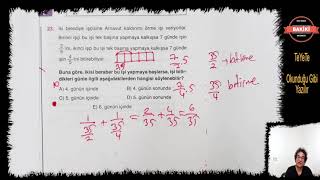 23. İki belediye işçisine Arnavut kaldırımı örme işi veriliyor.
Birinin işçi bu işi tek başına yapmaya kalkışsa 7 günde işin
2/5 'ini, ikinci işçi bu işi tek başına yapmaya kalkışsa 7 günde
işin 4/5 'ini bitirebiliyor.
Buna göre, ikisi beraber bu işi yapmaya başlarsa, işi bitir-
dikleri günle ilgili aşağıdakilerden hangisi söylenebilir?
A) 4. günün içinde
C) 5. günün içinde
E) 6. günün içinde
7/2 . 5
35/2 bitirme
7/4 . 5
35/4 bitirme
1/(35/2) + 1/(35/4) = 2/35 + 4/35 = 6/35
BAKİKİ
TaYeTe
Okunduğu Gibi
Yazılır